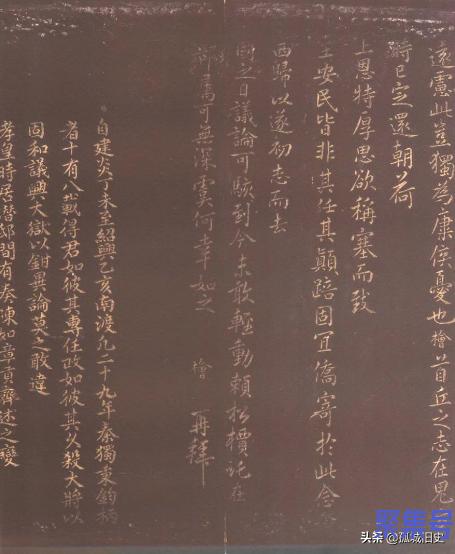 遠慮此豈獨為康侯憂也檜首丘之志在鬼
時已定還朝荷
上恩特厚思欲稱塞而致
主安民皆非其任其顛踣固宜僑寄於此念
西歸以遂初志而去
國之日議論可駭到今未敢輕動賴松檟託在
鄉寓可無深虞何幸如之 檜 再拜
自建炎丁未至紹興乙亥南渡凡二十九年秦獨秉鈞柄
者十有八載得君如彼其專任政如彼其久殺大將以
固和議興大獄以鉗異論莫之敢違
孝皇時居替邸間有奏陳如章貢齊述之變
聚焦号
头条 @孤城旧史